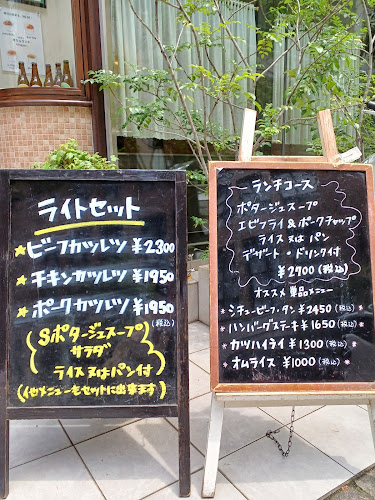 ライトセット
★ビーフカツレツ ¥2300
★チキンカツレツ ¥1950
★ポークカツレツ ¥1950
(税込)
Sポタージュスープ
サラダ
ライス又はパン付
(他メニューもセットに出来ます)
ランチコース
ポタージュスープ
エビフライ&ポークチャップ
ライス又はパン
デザート・ドリンク付
¥2900(税込)
オススメ 単品メニュー
*シチュービーフ・タン ¥2450(税込)*
*ハンバーグステーキ ¥1650(税込)*
*カツハイライ ¥1300(税込)*
*オムライス ¥1000(税込)*